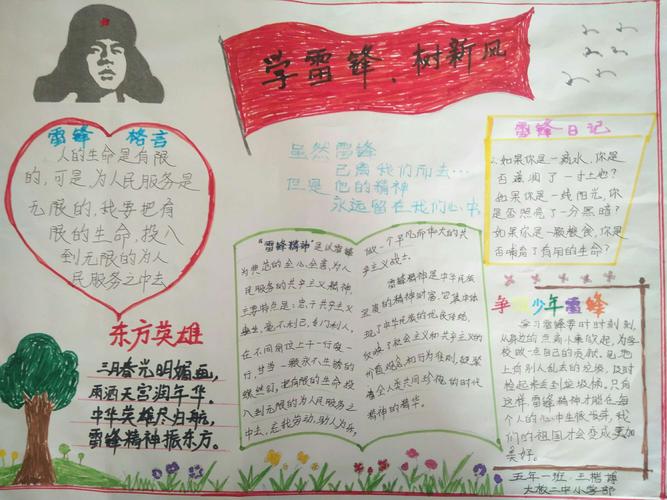 学雷锋、树新风
雷锋 格言
人的生命是有限
的，可是为人民服务是
无限的，我要把有
限的生命，投入
到无限的为人
民服务之中去
虽然雷锋
已离我们而去…
但是他的精神
永远留在我们心中
雷锋日记
如果你是一滴水，你是
否滋润了一寸土地？
如果你是一线阳光，你
是否照亮了一分黑暗？
如果你是一颗粮食，你是
否哺育了有用的生命？
东方英雄
三月春光明媚画，
雨洒天宫润年华。
中华英雄尽归航，
雷锋精神振东方。
"雷锋精神"是以雷锋
为典范的全心全意，为人
民服务的共产主义精神，
主要特点是：忠于共产主义
事业，爱不利己，专门利人，
在不同岗位上干一行爱一
行，甘当一颗永不生锈的
螺丝钉，把有限的生命投
入到无限的为人民服务之
中去，忘我劳动，助人为乐，
做一个平凡而伟大的共
产主义战士。
雷锋精神是中华民族
宝贵的精神财富，它集中体
现了中华民族的优良传统，
反映了社会主义和共产主义的
价值观念和行为准则，凝聚
着全人类共同珍视的时代
精神的精华。
争做少年雷锋
学习雷锋要时时刻刻，
从身边的点滴小事做起，为学
校做一点自己的贡献，见地
上有别人乱丢的垃圾，及时
捡起来丢到垃圾桶，只有
这样，雷锋精神才能在每
个人的心中生根发芽，我
们的祖国才会变成更加
美好。
五年一班 王楷博
大板二中小学部